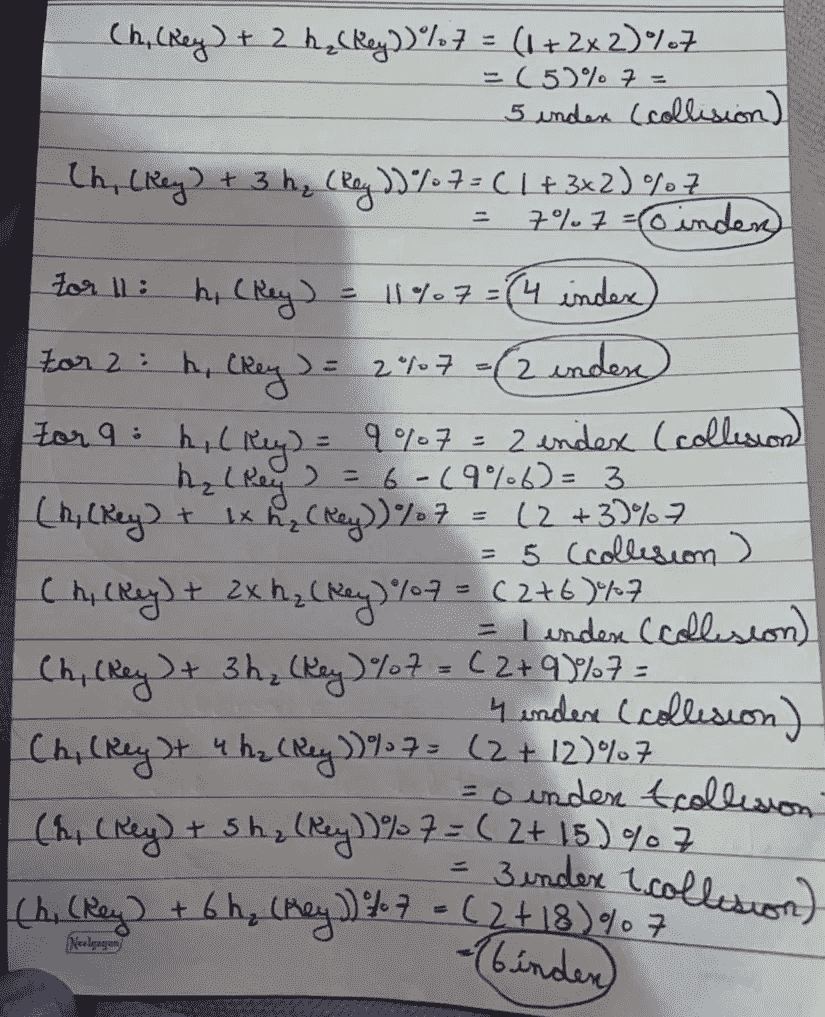 (h₁(Key) + 2 h₂(Key))%7 = (1 + 2x2)%7
= (5)% 7 =
5 index (collision)
(h₁(Key) + 3 h₂ (Key))%7 = (1 + 3x2) %7
= 7%7 = 0 index
For 11: h₁ (Key) = 11%7 = 4 index
For 2: h₁ (Key) = 2%7 = 2 index
For 9: h₁(Key) = 9%7 = 2 index (collision)
h₂(Key) = 6 - (9%6) = 3
(h₁(Key) + 1x h₂(Key))%7 = (2 + 3)%7
= 5 (collision)
(h₁(Key) + 2x h₂(Key)%7 = (2+6)%7
= 1 index (collision)
(h₁(Key) + 3h₂(Key)%7 = (2+9)%7 =
4 index (collision)
(h₁(Key)+ 4 h₂(Key))%7 = (2 + 12)%7
= 0 index (collision
(h₁(Key) + 5h₂(Key))%7 = (2+ 15) %7
= 3 index (collision)
(h₁(Key) + 6h₂(Key))%7 = (2+18)%7
= 6 index
Neelgagan